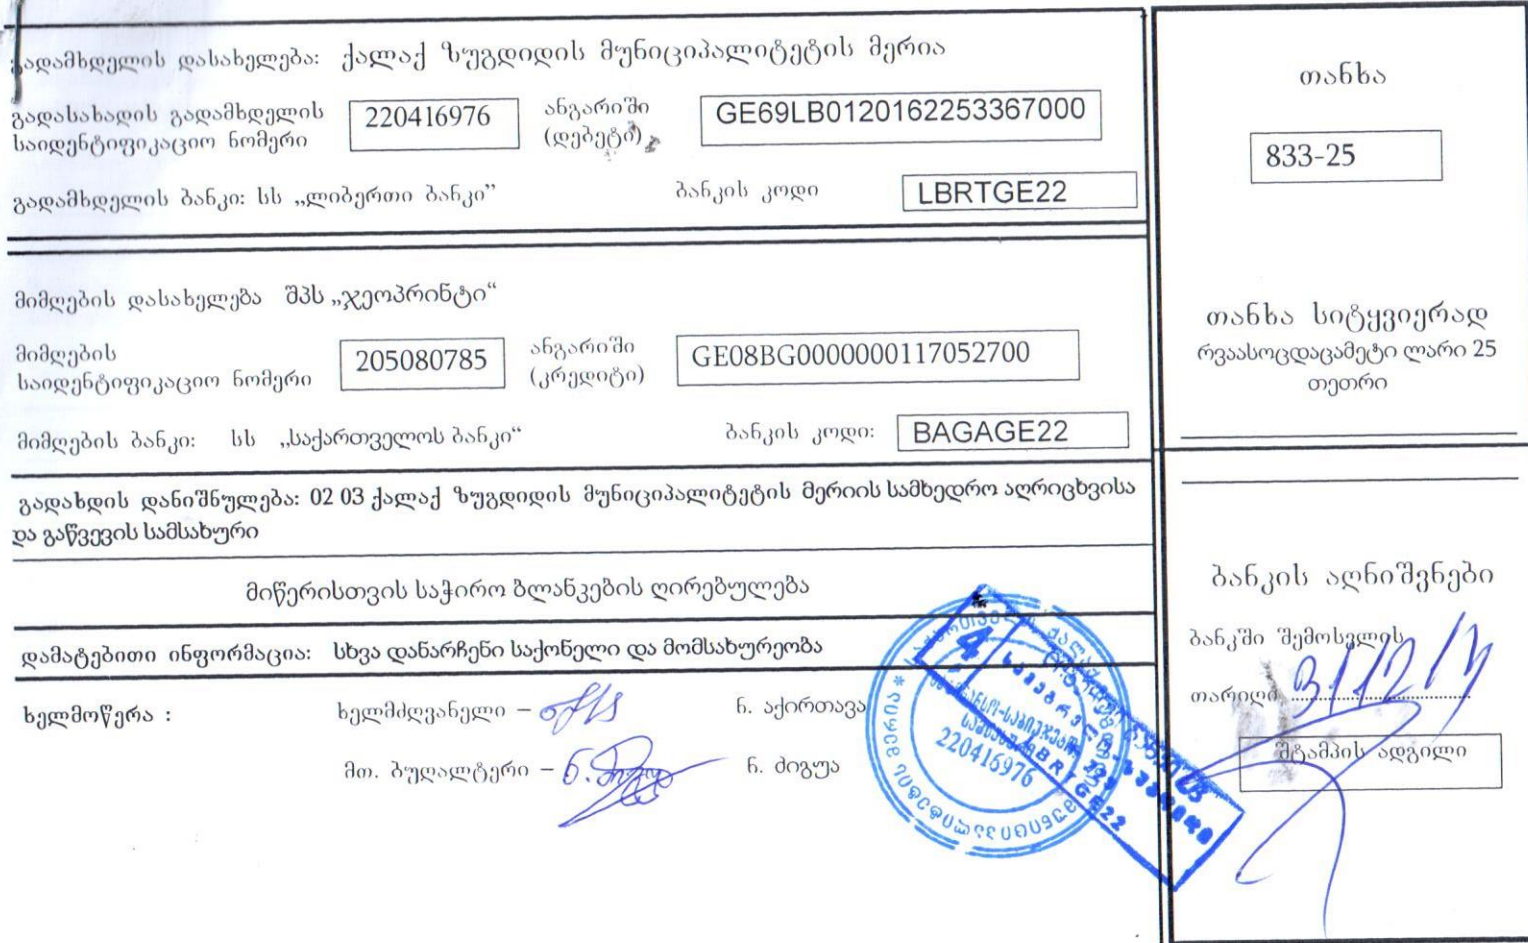 გადამხდელის დასახელება: ქალაქ ზუგდიდის მუნიციპალიტეტის მერია
გადასახადის გადამხდელის საიდენტიფიკაციო ნომერი 220416976 ანგარიში (დებეტი) GE69LB0120162253367000
გადამხდელის ბანკი: სს „ლიბერთი ბანკი” ბანკის კოდი LBRTGE22
თანხა
833-25
მიმღების დასახელება შპს „ჯეოპრინტი“
მიმღების საიდენტიფიკაციო ნომერი 205080785 ანგარიში (კრედიტი) GE08BG0000000117052700
მიმღების ბანკი: სს „საქართველოს ბანკი“ ბანკის კოდი: BAGAGE22
თანხა სიტყვიერად
რვაასოცდაცამეტი ლარი 25
თეთრი
გადახდის დანიშნულება: 02 03 ქალაქ ზუგდიდის მუნიციპალიტეტის მერიის სამხედრო აღრიცხვისა
და გაწვევის სამსახური
მიწერისთვის საჭირო ბლანკების ღირებულება
დამატებითი ინფორმაცია: სხვა დანარჩენი საქონელი და მომსახურეობა
ხელმოწერა :
ხელმძღვანელი – ნ. აქირთავა
მთ. ბუღალტერი – ნ. ძიგუა
220416976
LBRTGE22
ბანკის აღნიშვნები
ბანკში შემოსვლის
თარიღი
შტამპის ადგილი